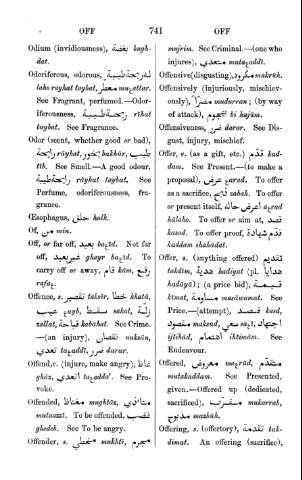 OFF 741 OFF
Odium (invidiousness), بغضة bagh-
dat.
Odoriferous, odorous, له رجحة طيبة
laho rayhat taybat, معطر mueattar.
See Fragrant, perfumed.—Odor-
iferousness, ريحة طيبة rîhat
taybat. See Fragrance.
Odor (scent, whether good or bad),
رايحة râyhat, بخور bakhûr, طيب
tîb. See Smell.—A good odour,
رايحة طيبة râyhat taybat. See
Perfume, odoriferousness, fra-
grance.
Œsophagus, حلق halk.
Of, من min.
Off, or far off, بعيد baeîd. Not far
off, غير بعيد ghayr baeîd. To
carry off or away, قام kâm, رفع
rafae.
Offence, s. تقصير taksîr, خطا khatâ,
عيب eayb, سقط sakat, زلة
zallat, قباحة kabâhat. See Crime.
—(an injury), نقصان nuksân,
تعدي taeaddî, ضرر darar.
Offend, v. (injure, make angry), غاظ
ghâz, اتعدي ataeadda'. See Pro-
voke.
Offended, مغتاظ mughtâz, متاذي
mutaazzî. To be offended, غضب
ghadab. See To be angry.
Offender, s. مخطي mukhtî, مجرم
mujrim. See Criminal.—(one who
injures), متعدي mutaeaddî.
Offensive (disgusting), مكروه makrûh.
Offensively (injuriously, mischiev-
ously), مضرا mudurran; (by way
of attack), بهجوم bi hujûm.
Offensiveness, ضرر darar. See Dis-
gust, injury, mischief.
Offer, v. (as a gift, etc.) قدم kad-
dam. See Present.—(to make a
proposal), عرض earad. To offer
as a sacrifice, ذبح zabah. To offer
or present itself, اعرض حاله aerad
hâlaho. To offer or aim at, قصد
kasad. To offer proof, قدم شهادة
kaddam shahâdat.
Offer, s. (anything offered) تقديم
takdîm, هدية hadiyat (pl. هدايا
hadâyâ); (a price bid), قيمة
kîmat, مساومة masâwamat. See
Price.—(attempt), قصد kasd,
مقصود maksûd, سعي saeî, اجتهاد
ijtihâd, اهتمام ihtimâm. See
Endeavour.
Offered, معروض maerûd, متقدم
mutakaddam. See Presented,
given.—Offered up (dedicated,
sacrificed), مقرب mukarrab,
مذبوح mazbûh.
Offering, s. (offertory), تقدمة tak-
dimat. An offering (sacrifice),